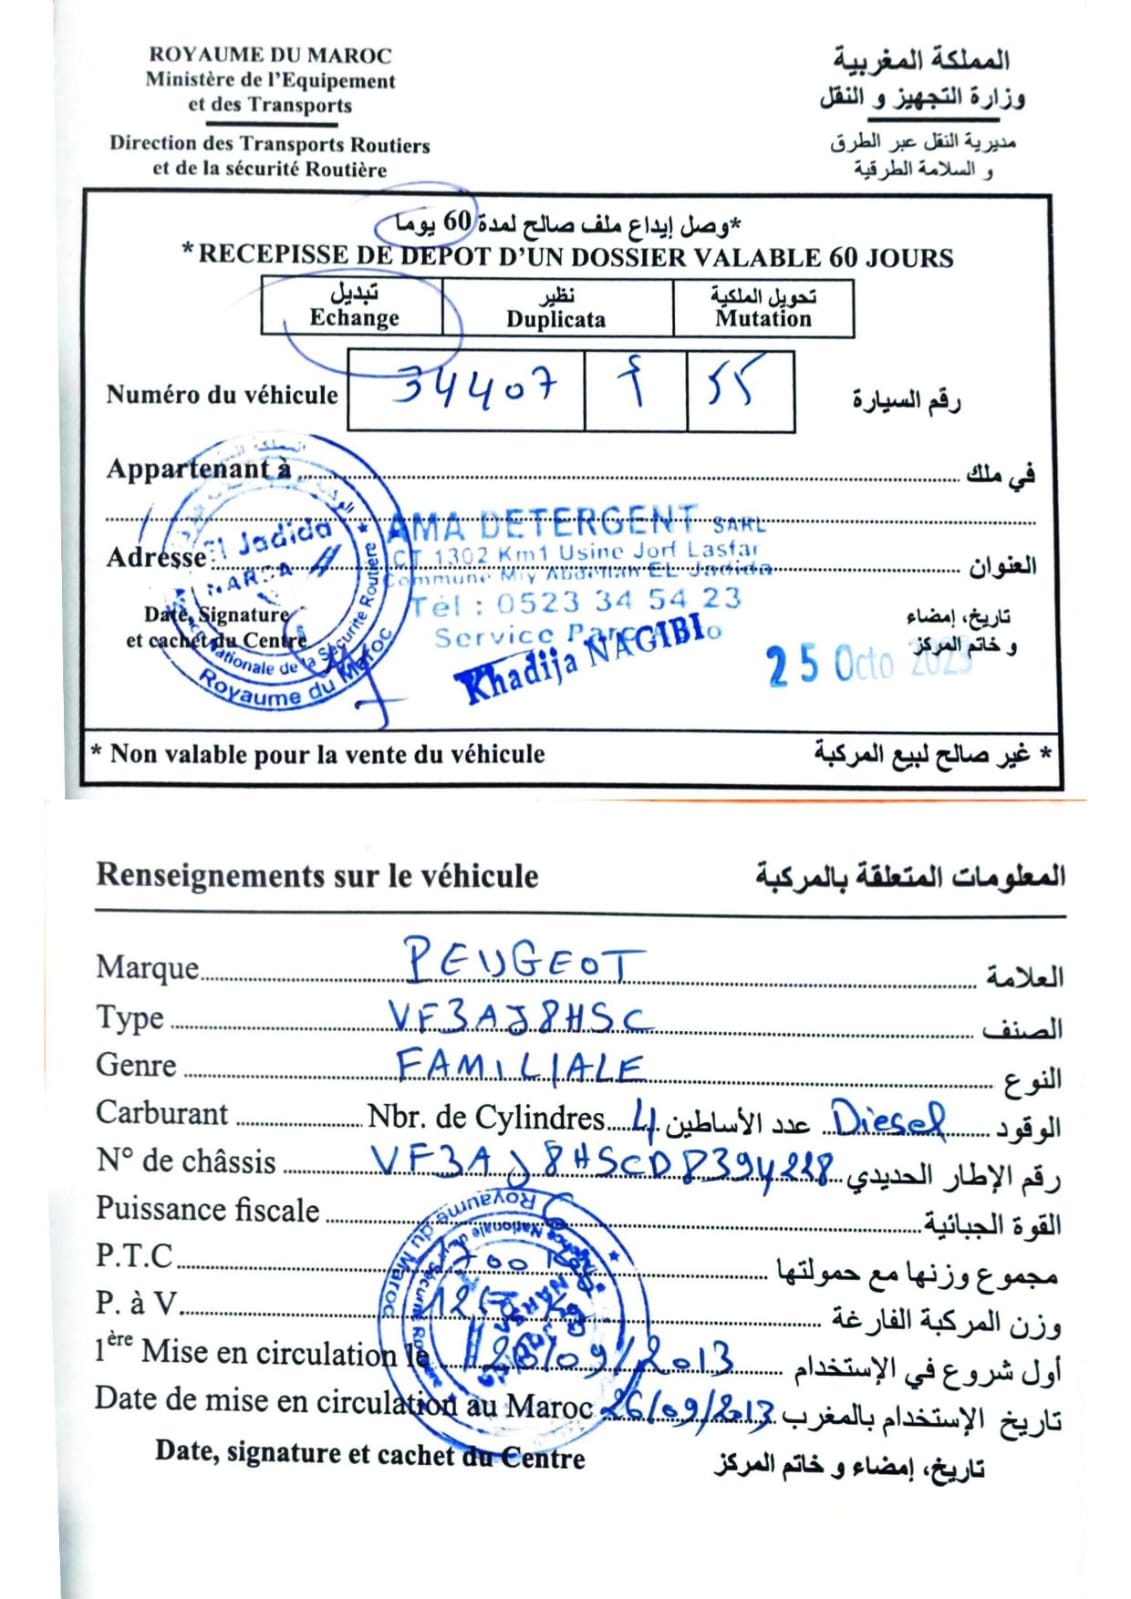 ROYAUME DU MAROC
Ministère de l'Equipement
et des Transports
Direction des Transports Routiers
et de la sécurité Routière
المملكة المغربية
وزارة التجهيز و النقل
مديرية النقل عبر الطرق
و السلامة الطرقية
*وصل إيداع ملف صالح لمدة 60 يوما
*RECEPISSE DE DEPOT D'UN DOSSIER VALABLE 60 JOURS
تبديل نظير تحويل الملكية
Echange Duplicata Mutation
Numéro du véhicule 34407 أ 55 رقم السيارة
Appartenant à في ملك
AMA DETERGENT SARL
Adresse العنوان
CT 1302 Km1 Usine Jorf Lasfar
Commune Mly Abdellah EL Jadida
Tél : 0523 34 54 23
Service
Khadija NAGIBI
El Jadida
NARSA
Nationale de la Sécurité Routière
Royaume du Maroc
Date, Signature
et cachet du Centre
تاريخ، إمضاء
و خاتم المركز
25 Octo 2023
* Non valable pour la vente du véhicule * غير صالح لبيع المركبة
Renseignements sur le véhicule المعلومات المتعلقة بالمركبة
Marque PEUGEOT العلامة
Type VF3AJ8HSC الصنف
Genre FAMILIALE النوع
Carburant Nbr. de Cylindres 4 عدد الأساطين Diesel الوقود
N° de châssis VF3AJ8HSCD8394218 رقم الإطار الحديدي
Puissance fiscale القوة الجبائية
P.T.C مجموع وزنها مع حمولتها
P. à V. وزن المركبة الفارغة
1ère Mise en circulation le /09/2013 أول شروع في الإستخدام
Date de mise en circulation au Maroc 26/09/2013 تاريخ الإستخدام بالمغرب
Date, signature et cachet du Centre تاريخ، إمضاء و خاتم المركز